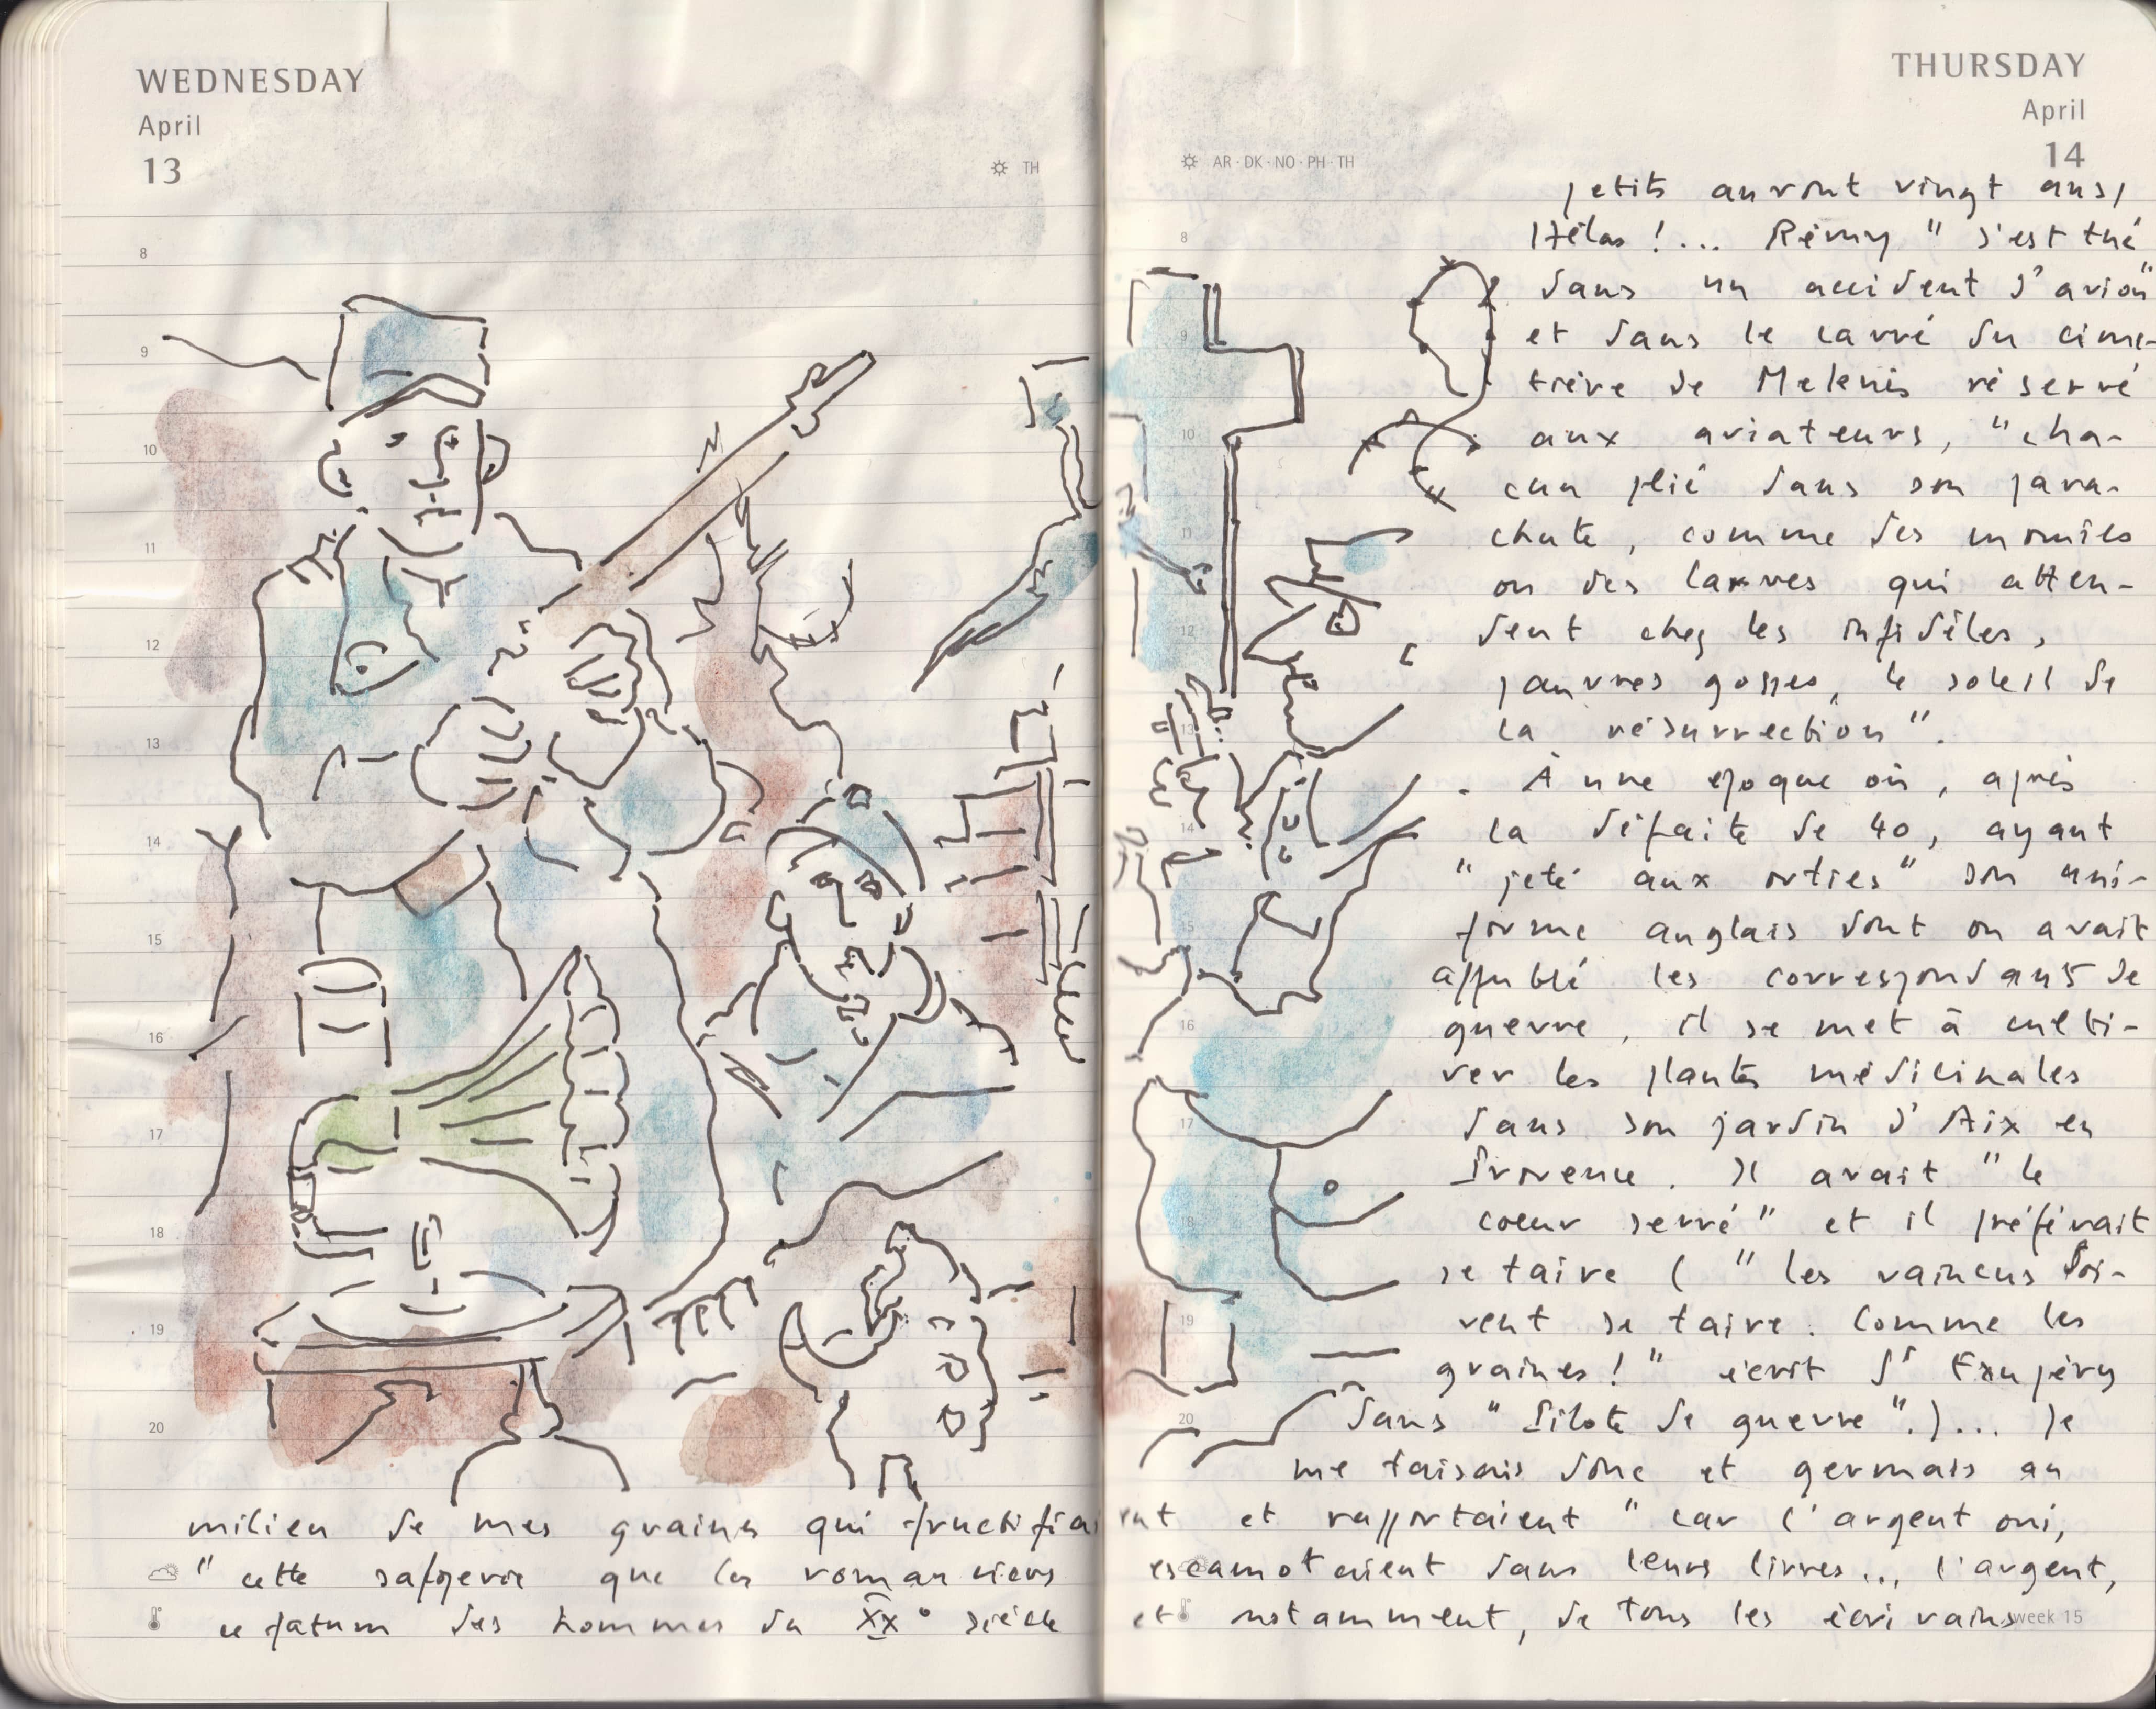 WEDNESDAY
April
13
TH
8
9
10
11
12
13
14
15
16
17
18
19
20
THURSDAY
April
14
AR · DK · NO · PH · TH
8
9
10
11
12
13
14
15
16
17
18
19
20
petits auront vingt ans,
Hélas !... Rémy " s'est tué
dans un accident d'avion"
et dans le carré du cime-
tière de Melenis réservé
aux aviateurs, "cha-
cun plié dans son para-
chute, comme des momies
ou des larves qui atten-
dent chez les infidèles,
pauvres gosses, le soleil de
la résurrection".
. À une époque où, après
la défaite de 40, ayant
" jeté aux orties" son uni-
forme anglais dont on avait
affublé les correspondants de
guerre, il se met à culti-
ver les plantes médicinales
dans son jardin d'Aix en
Provence. Il avait " le
coeur serré" et il préférait
se taire ( " les vaincus doi-
vent se taire. Comme les
graines ! " écrit St Exupéry
dans " Pilote de guerre ".)... Je
me taisais donc et germais au
milieu de mes graines qui fructifiaient et rapportaient " car l'argent oui,
" cette que les romanciers escamotaient dans leurs livres..., l'argent,
ce fatum des hommes du XX° siècle et notamment, de tous les écrivains
week 15